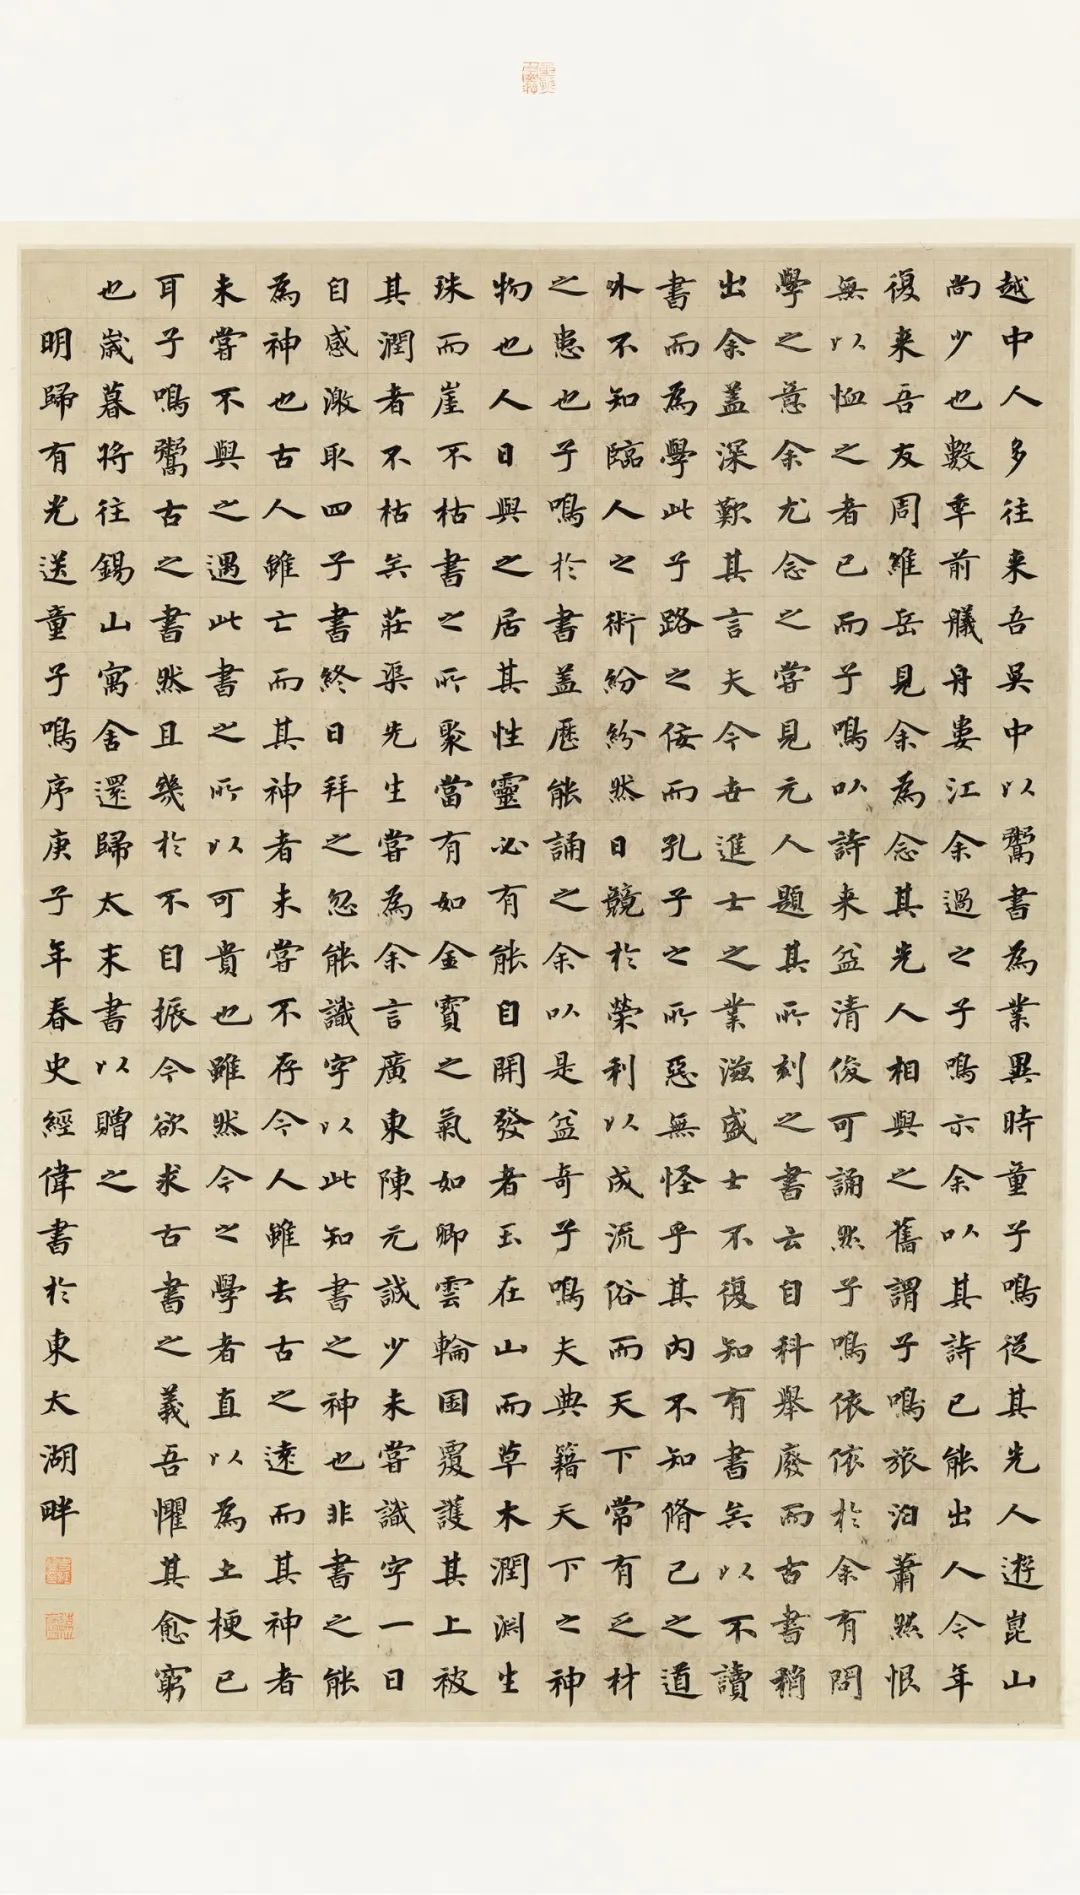 越中人多往来吾吴中以鬻書為業異時童子鳴從其先人遊崑山
尚少也數年前艤舟婁江余過之子鳴示余以其詩已能出人今年
復来吾友周維岳見余為念其先人相與之舊謂子鳴旅泊蕭然恨
無以恤之者已而子鳴以詩来益清俊可誦然子鳴依依於余有問
學之意余尤念之嘗見元人題其所刻之書云自科舉廢而古書稍
出余蓋深歎其言夫今世進士之業滋盛士不復知有書矣以不讀
書而為學此子路之佞而孔子之所惡無怪乎其內不知脩己之道
外不知臨人之術紛紛然日競於榮利以成流俗而天下常有乏材
之患也子鳴於書蓋歷能誦之余以是益奇子鳴夫典籍天下之神
物也人日與之居其性靈必有能自開發者玉在山而草木潤淵生
珠而崖不枯書之所聚當有如金寶之氣如卿雲輪囷覆護其上被
其潤者不枯矣莊渠先生嘗為余言廣東陳元誠少未嘗識字一日
自感激取四子書終日拜之忽能識字以此知書之神也非書之能
為神也古人雖亡而其神者未嘗不存今人雖去古之遠而其神者
未嘗不與之遇此書之所以可貴也雖然今之學者直以為土梗已
耳子鳴鬻古之書然且幾於不自振今欲求古書之義吾懼其愈窮
也歲暮将往錫山寓舍還歸太末書以贈之
明歸有光送童子鳴序庚子年春史經偉書於東太湖畔